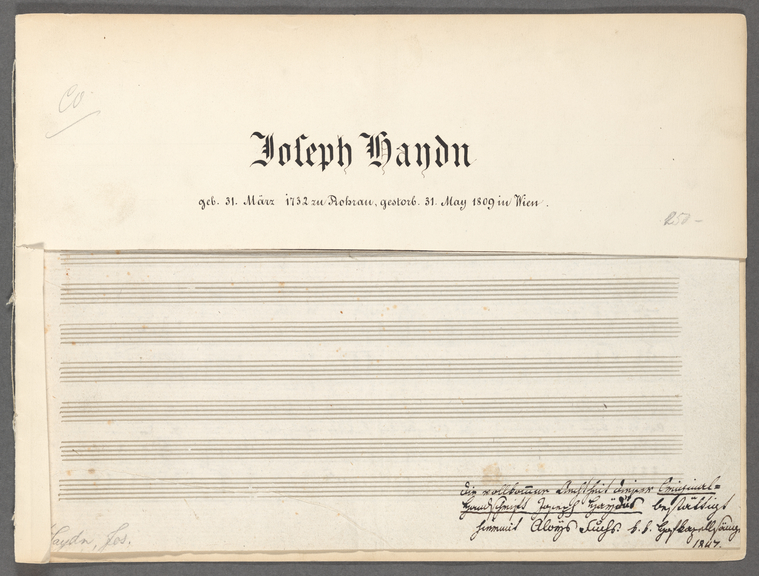 Co
Joseph Haydn
geb. 31. März 1732 zu Rohrau, gestorb. 31. May 1809 in Wien.
250 –
Die vollkommene Aechtheit dieser Original-
Handschrift Joseph Haydns bestättigt
hiemit Aloys Fuchs. k. k. Hofkapellsäng.
1847.
Haydn, Jos.